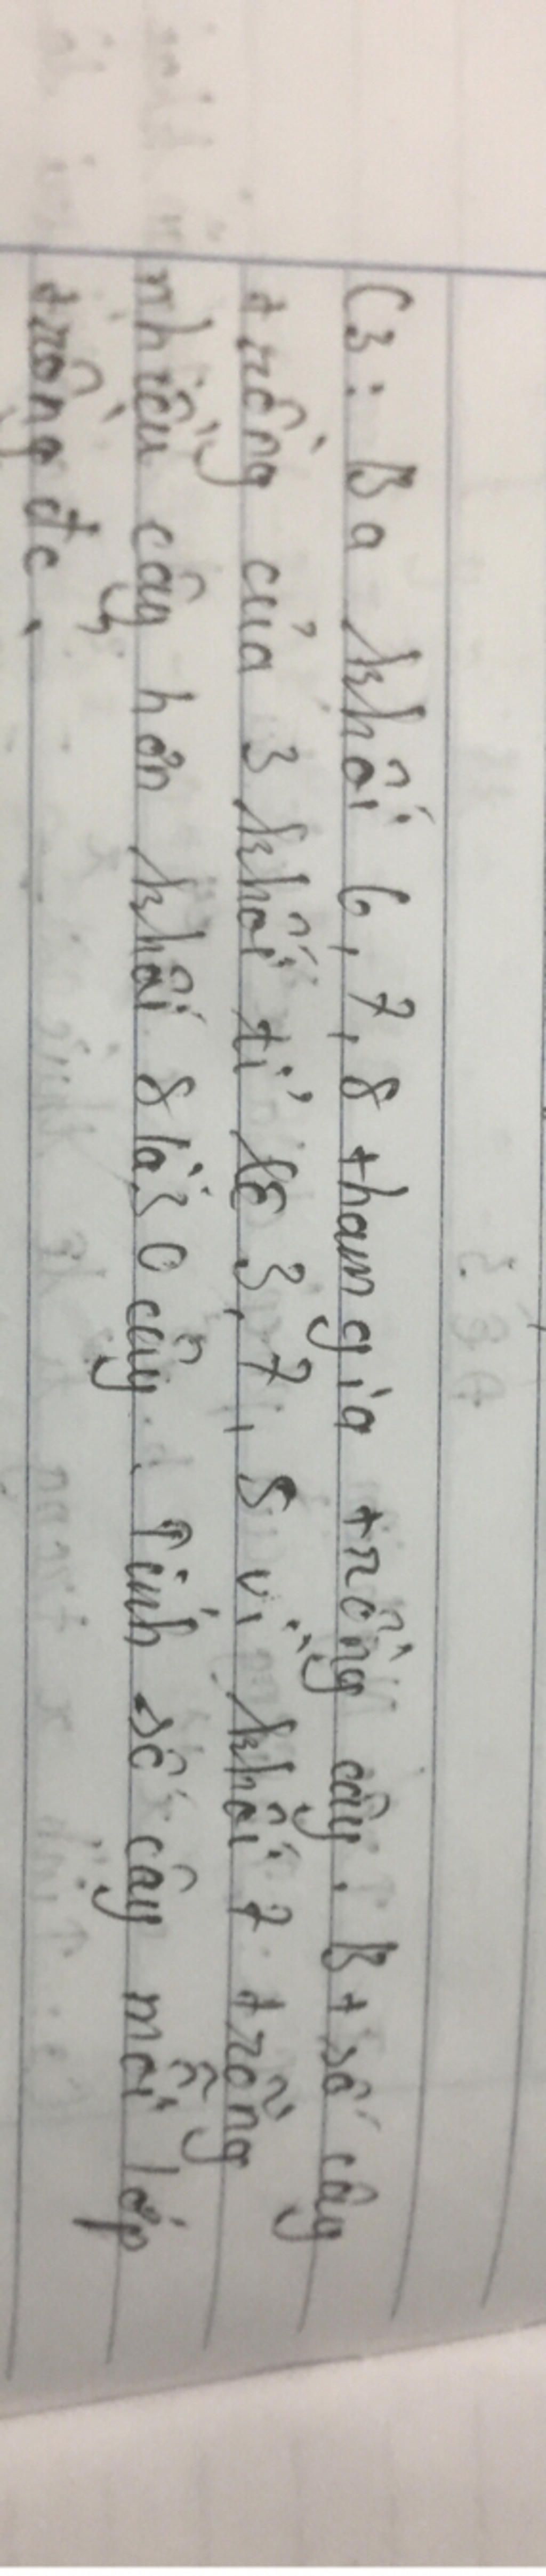 C3: Ba khối 6, 7, 8 tham gia trồng cây. Bt số cây
trồng của 3 khối tỉ lệ 3, 7, 5 vì khối 7 trồng
nhiều cây hơn khối 8 là 30 cây. Tính số cây mỗi lớp
trồng đc.